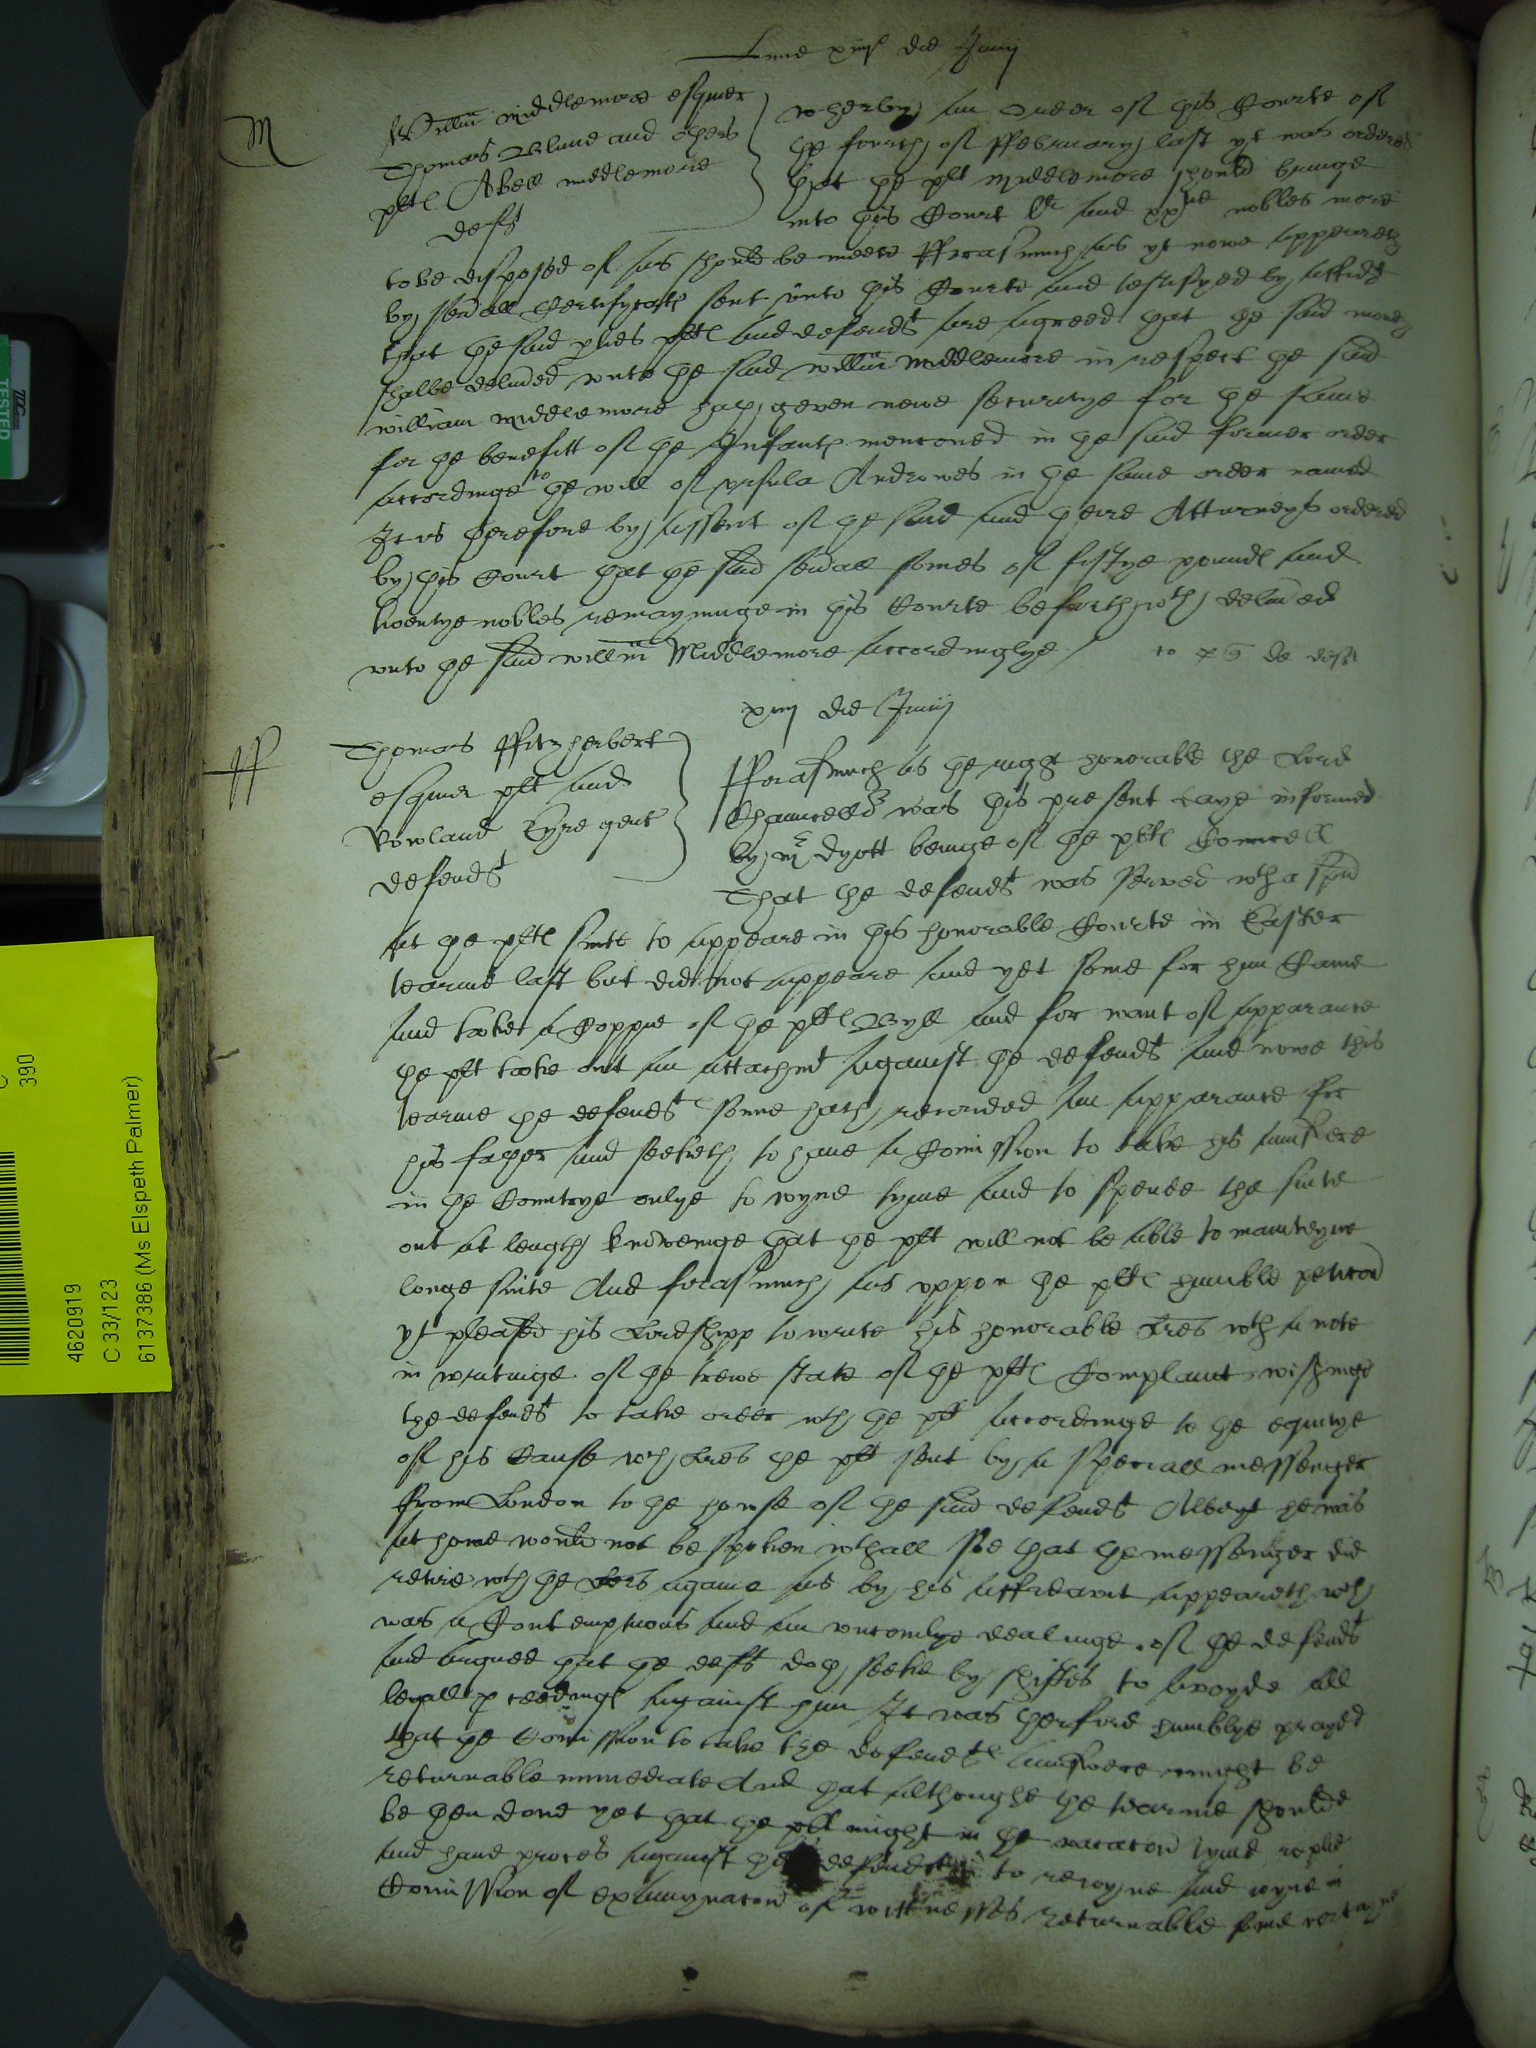 Lune xiiij° die Junij
M
Willm Middlemore esquier
Thomas Blune and others
pltes Abell middlemore
defts
wherby an Order of this Courte of
the fourth of Ffebruary last yt was ordered
that the plt Middlemore should bringe
into this Court Lli and xxtie nobles more
to be disposed of as should be meete Fforasmuch as yt nowe appeareth
by seuall Certifycates sent vnto this Courte and testifyed by affidt
that the said pties pltes and defendts are agreed that the said money
shalbe deliued vnto the said willm Middlemore in respect the said
william Middlemore hath geven newe securitye for the same
for the benefitt of the Infantes mencioned in the said former order
accordinge to the will of vrsula Androwes in the same order named
It is therefore by assent of the said and theire Atturneys ordered
by this Court that the said seuall somes of fiftye poundes and
twentye nobles remayninge in this Courte be forthwth deliued
vnto the said willm Middlemore accordinglye
xiiij die Junij
ff
Thomas Ffitzherbert
esquier plt and
Rowland Eyre gent
defendt
Fforasmuch as the right honorable the Lord
Chauncellor was this present daye informed
by mr Dyott beinge of the pltes Councell
That the defendt was served wth a spna
at the pltes suite to appeare in this honorable Courte in Easter
tearme last but did not appeare and yet some for him Came
and tooke a Coppie of the pltes Byll and for want of apparance
the plt tooke out an attachmt against the defendt And nowe this
tearme the defendts sonne hath recorded an apparance for
his father and seeketh to have a Comission to take his aunswere
in the Countrye onlye to wyne tyme and to spence the suite
out at length knowenge that the plt will not be able to maynteyne
longe suite And forasmuch as vppon the pltes humble peticon
yt pleased his Lordshipp to write his honorable Lres wth a note
in writinge of the trewe state of the pltes Complaint wishinge
the defendt to take order wth the plt accordinge to the equitye
of his Cause wch Lres the plt sent by a speciall messenger
from London to the howse of the said defendt Albeyt he was
at home would not be spoken wthall Soe that the messenger did
retire wth the Lres againe as by his affidavit appeareth wch
was a Contemptuous and an vncomlye dealinge of the defendt
and argued that the deft doth seeke by shiftes to avoyde all
legall pceedinges against him It was therfore humblye prayed
that the Comission to take the defendtes aunswere might be
returnable immediate And that althoughe the tearme should
be then done yet that the plt might in the vacacon tyme replie
and have proces against the defendt to reioyne and ioyne in
Comission of examynacon of wittnesses returnable sine
4620919
C 33/123
6137386 (Ms Elspeth Palmer)
390
TESTED